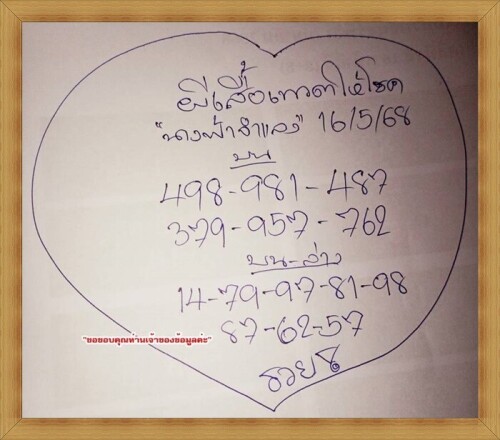 ผีเสื้อเทวดาให้โชค
"นางฟ้าจำแลง" 16/5/68
บน
498-981-487
379-957-762
บน-ล่าง
14-79-97-81-98
87-62-57
"ขอขอบคุณท่านเจ้าของข้อมูลค่ะ"
รวยๆ